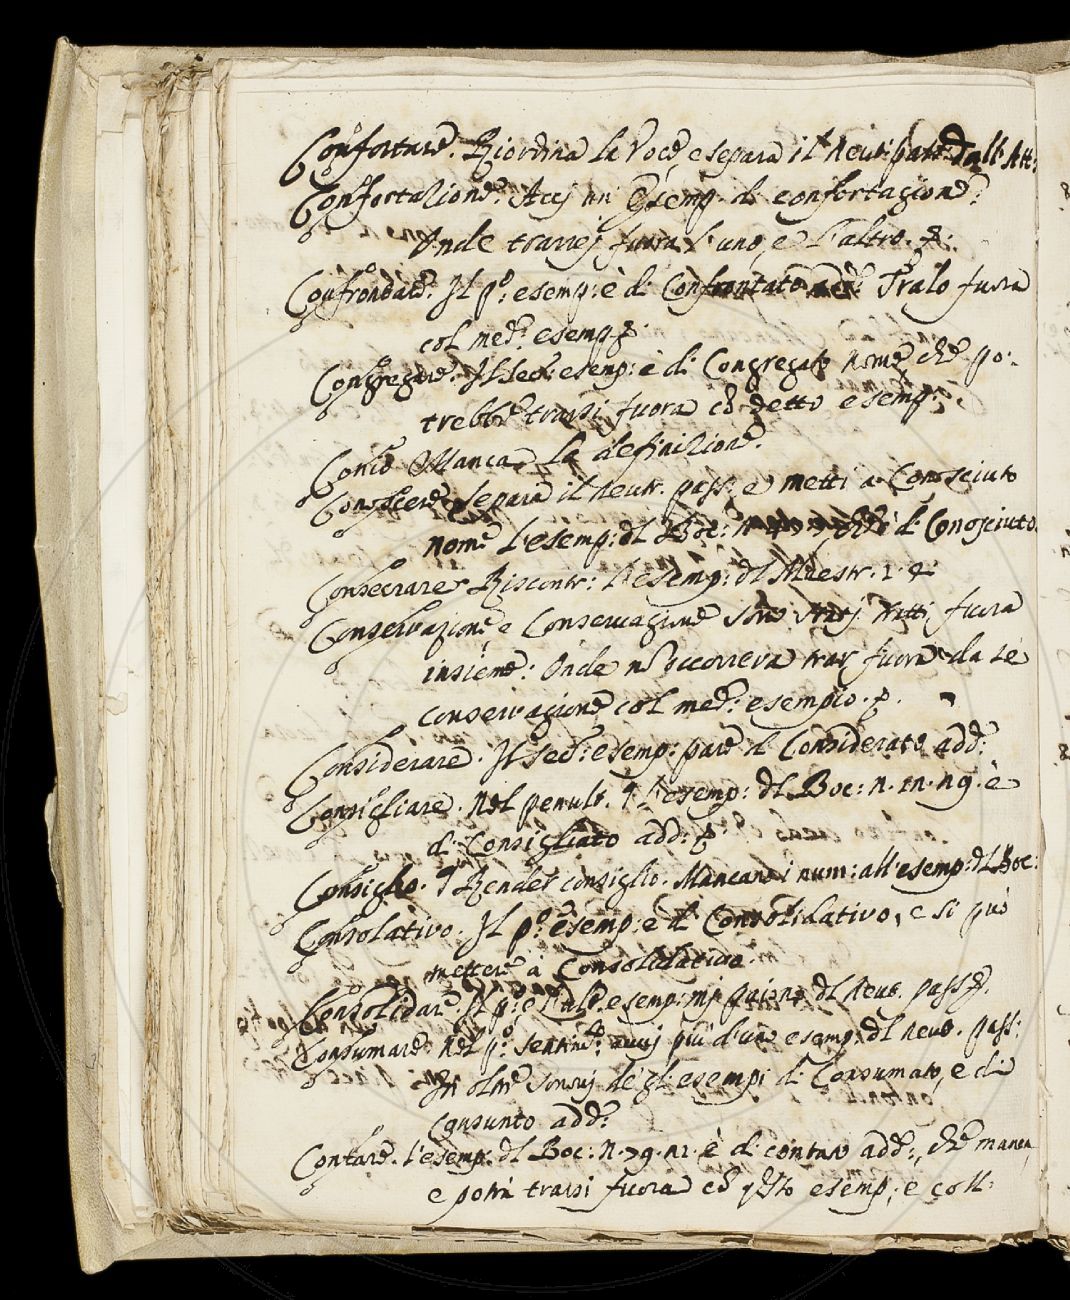 Confortare. Riordina la Voce, e separa il Neut: pass: dall'Att:
Confortazione: Acci un esemp. di confortagione:
Onde trarrej fuora l'uno, e l'altro.
Confrondare. Il p.º esemp: è di Confrontato add: Tralo fuora
col med.º esemp.
Congregare. Il sec: esemp: è di Congregato nome, che po:
trebbe trarsi fuora cõ detto esemp.
Conio Manca la definizione.
Conoscere separa il Neutr. pass: e metti a Conosciuto
nome l'esemp: dl Boc: n. ch'è di Conosciuto
Consecrare Riscontr: l'esemp: dl Maestr. 2.
Conservazione e Conservagione sono stati tratti fuora
insieme: Onde nõ occorreva trar fuora da se
conservagione col med: esempio.
Considerare. Il sec: esemp: pare d Considerato add:
Consigliare. Nel penult. ¶ l'esemp: dl Boc: n. è
di Consigliato add:
Consiglio. ¶ Render consiglio. Mancano i num: all'esemp: dl Boc:
Consolativo. Il p.º esemp: è d Consolidativo, e si può
mettere à Consolidativo.
Consolidare. Il p.º e l'ult.º esemp: mj paiono dl Neut. pass.
Consumare Nel p.º sentim.º accj più d'un esemp: dl neut. pass:
Jn oltre sonvj degl'esempi di Consumato, e di
Consunto add:
Contare. l'esemp: dl Boc: n. 79. è di contato add:, che manca,
e potrà trarsi fuora cõ qsto esemp: e coll: